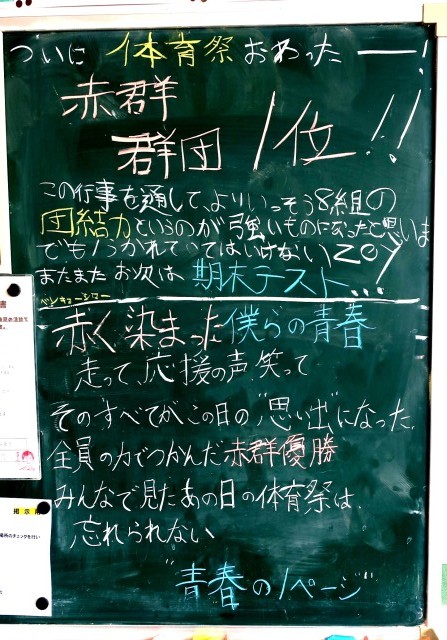 ついに 体育祭 おわったー!
赤群
群団 1位!!
この行事を通して、よりいっそう8組の
団結力というのが強いものになったと思いま
でもうかれていてはいけないZOY
またまた お次は、期末テスト...
ベンキョーシロー
赤く染まった僕らの青春
走って、応援の声、笑って
そのすべてが、この日の"思い出"になった。
全員の力でつかんだ赤群優勝
みんなで見たあの日の体育祭は、
忘れられない
"青春の1ページ"
書
掲示用
場所のチェックを行い